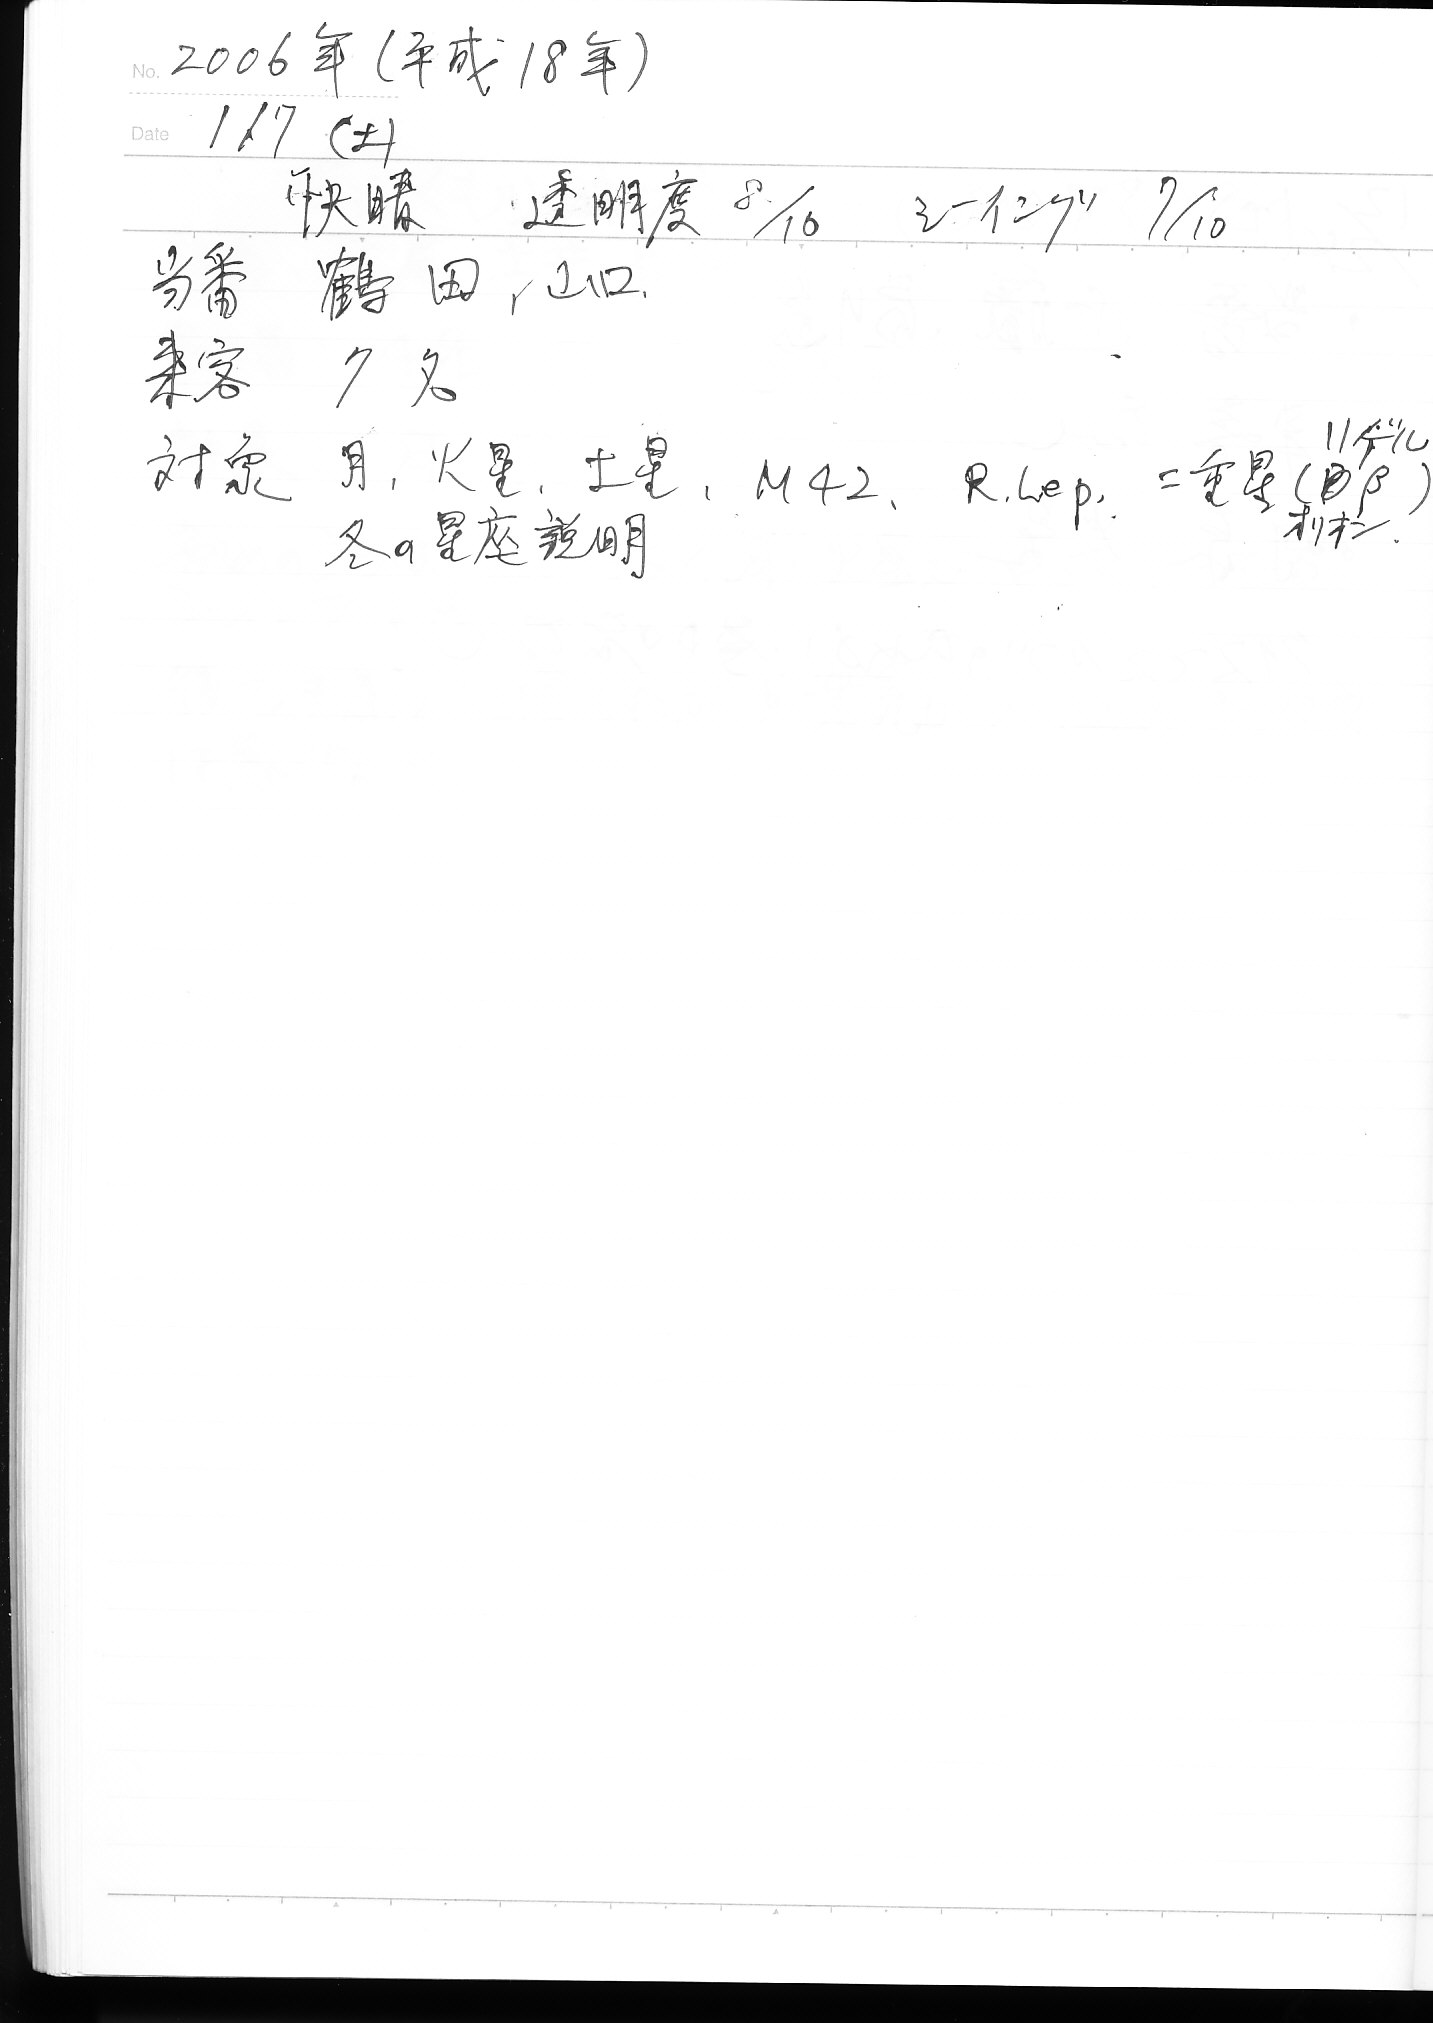 No. 2006年(平成18年)
Date 1/7 (土)
快晴 透明度 8/10 シーイング 7/10
当番 鶴田, 山口.
来客 7名
リゲル
対象 月, 火星, 土星, M42, R.Lep. 二重星(β)
オリオン
冬の星座説明